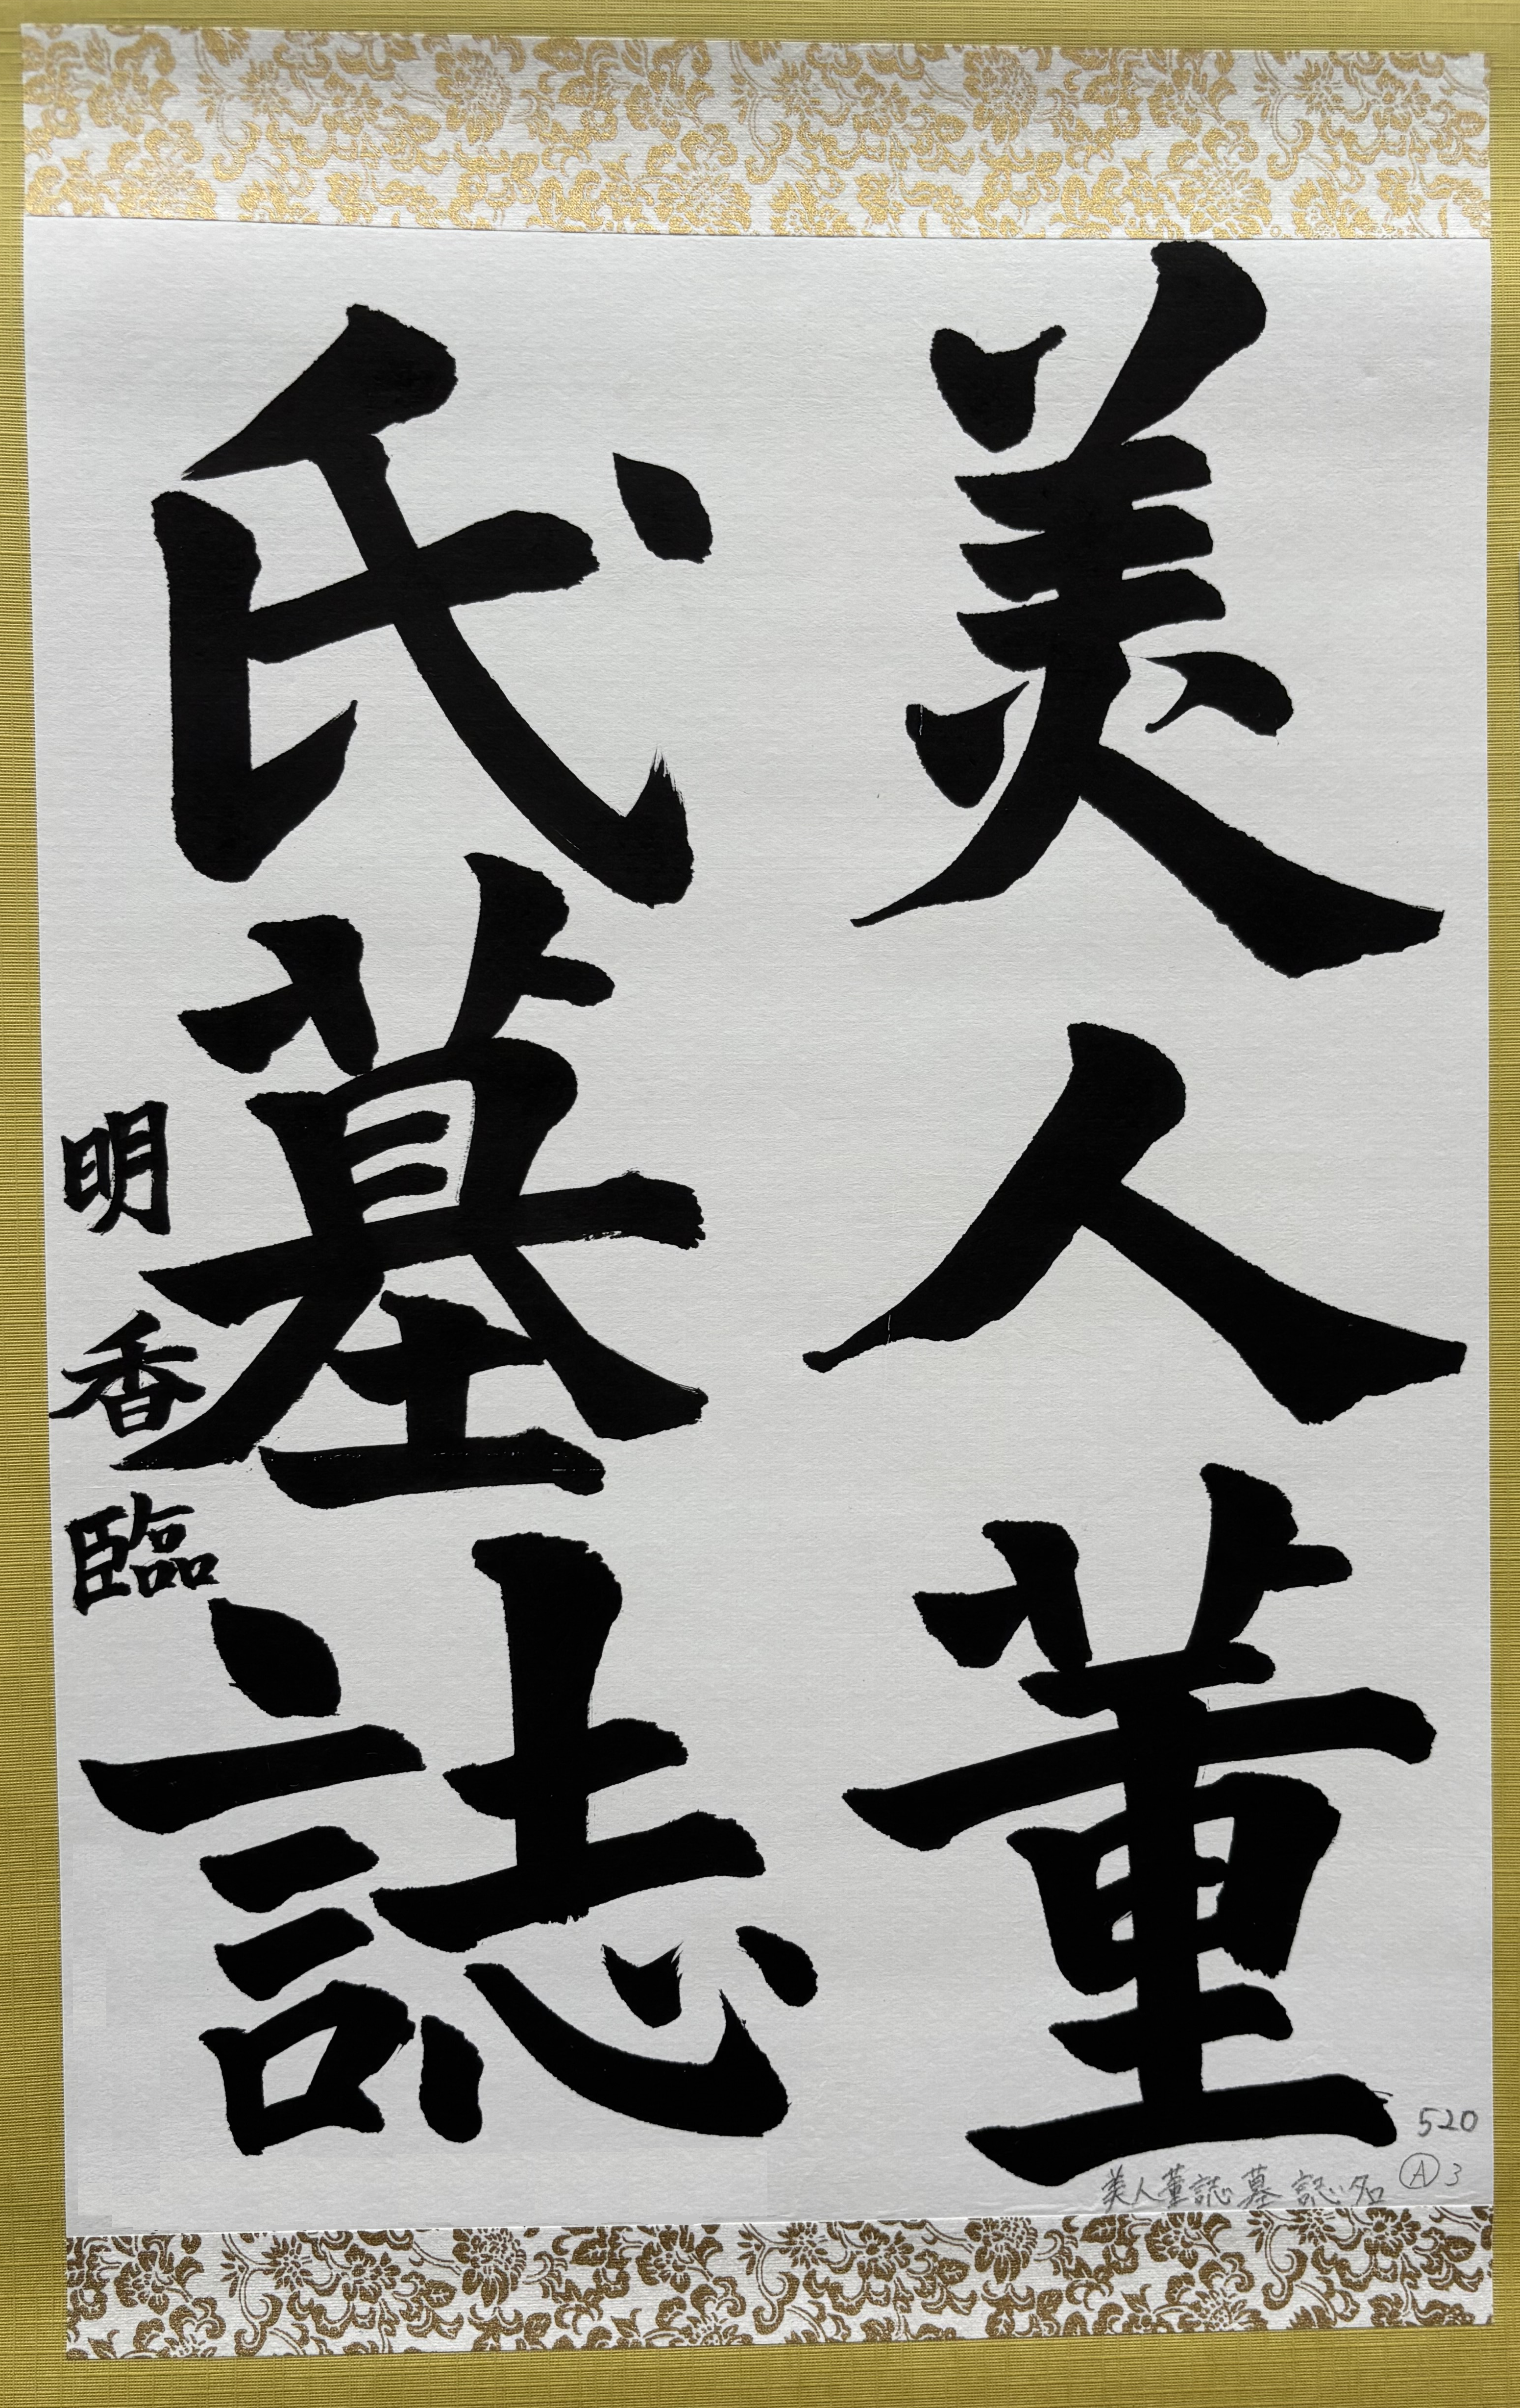 美人董
氏墓誌
明香臨
520
Ⓐ3
美人董誌墓誌名